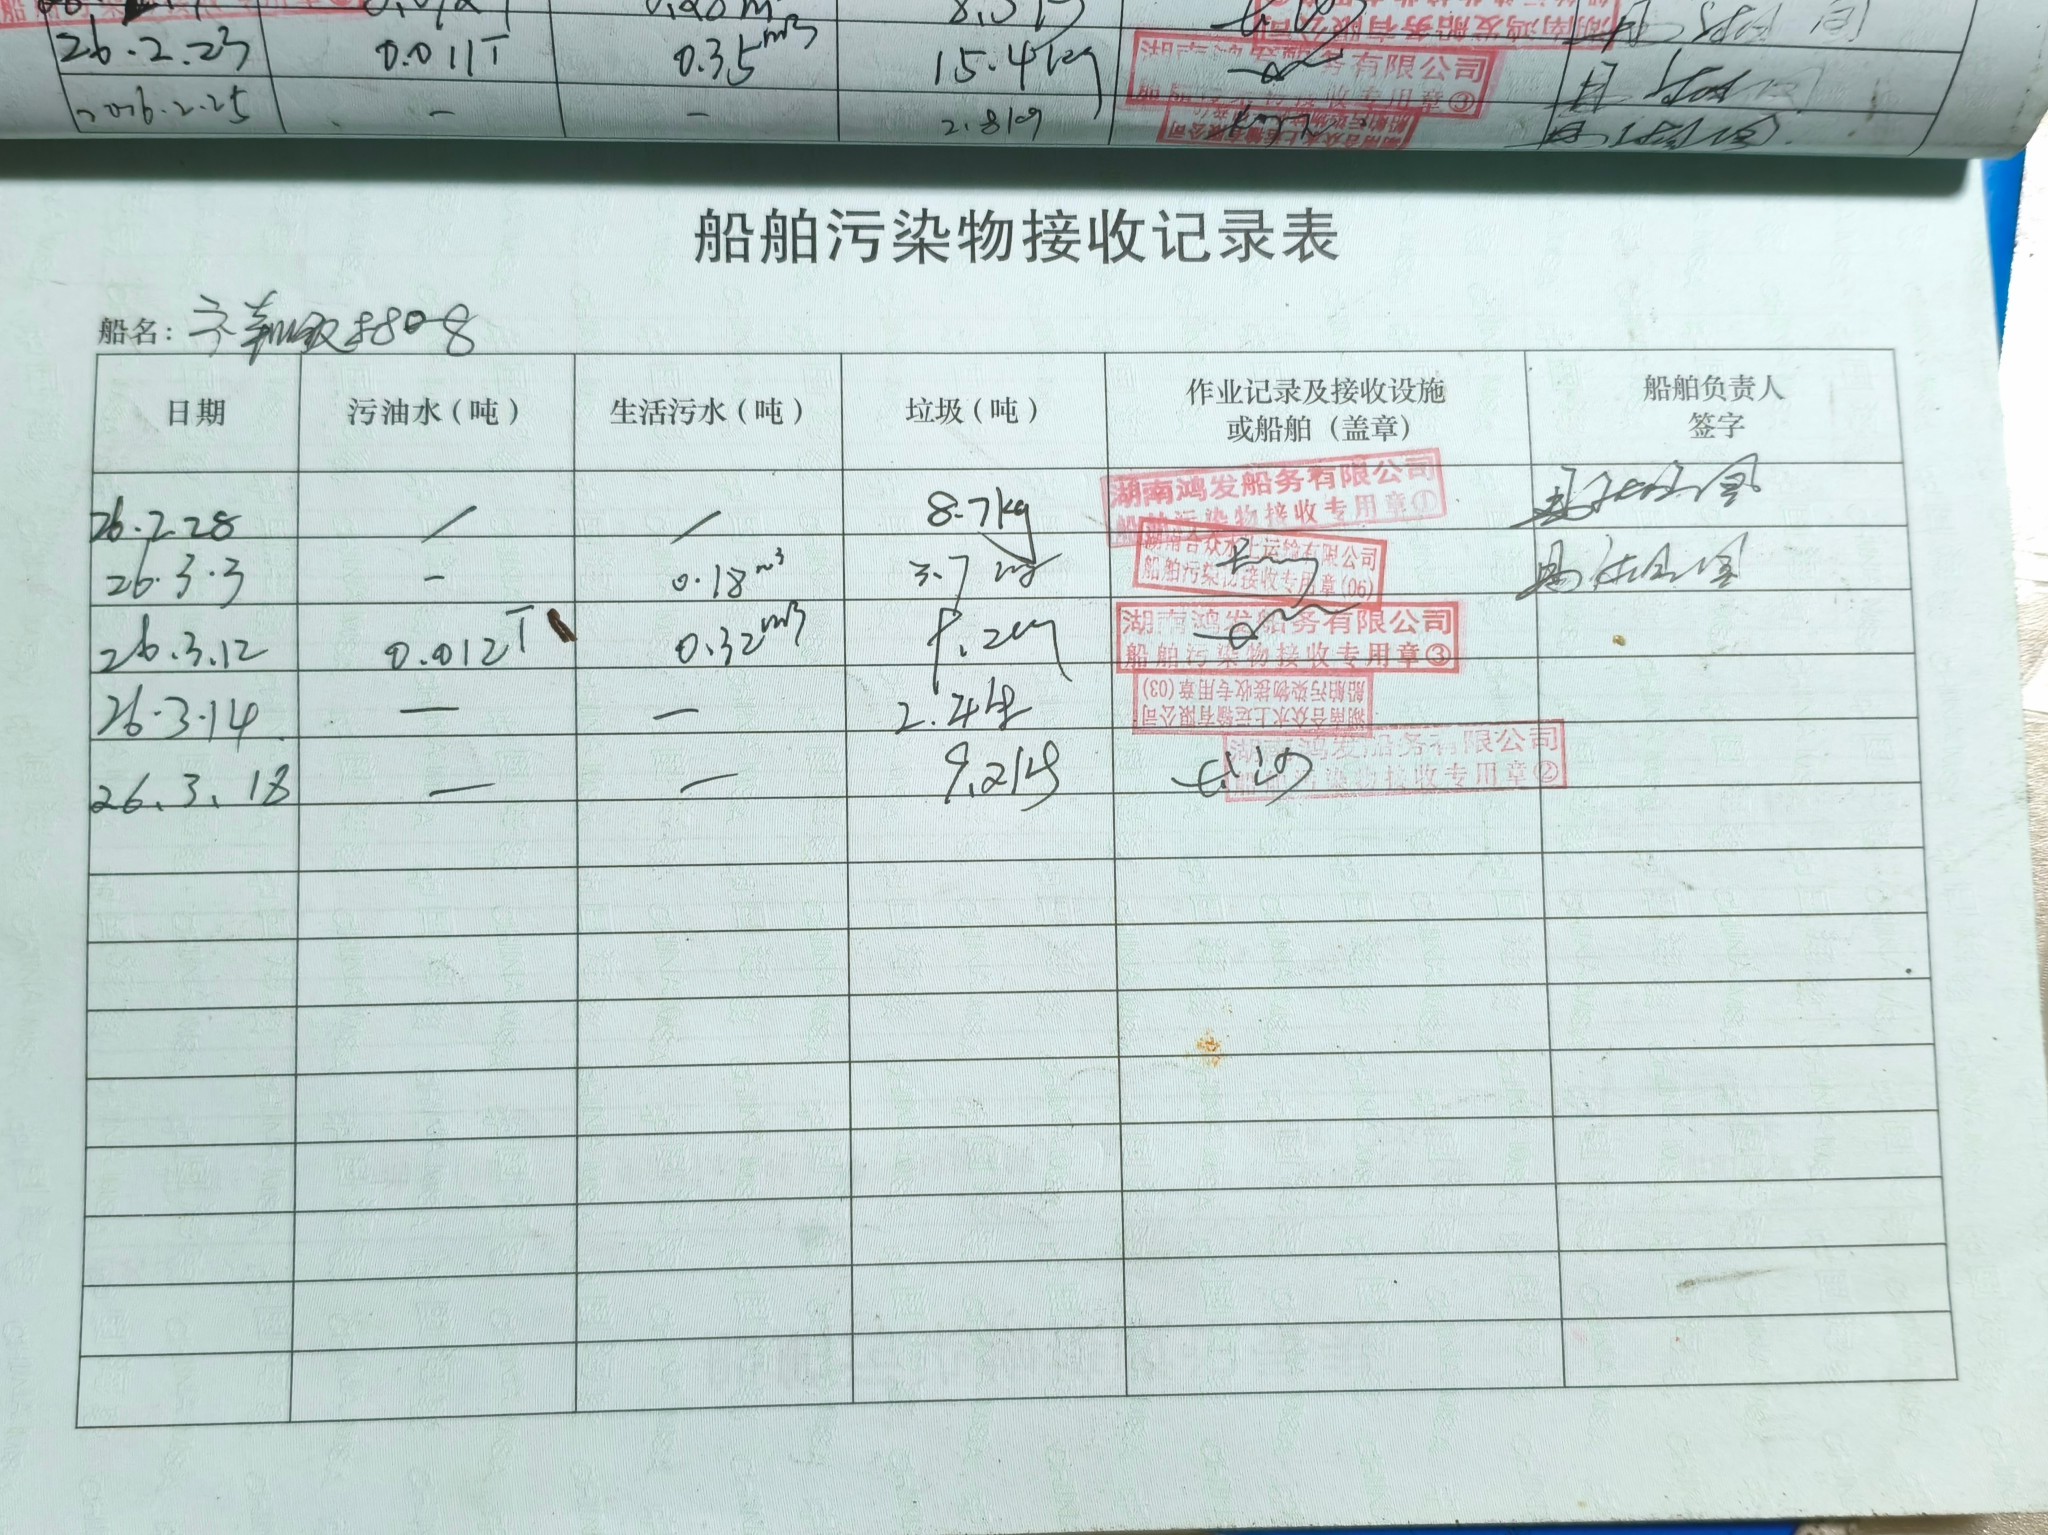 26.2.23 0.011T 0.35m³ 15.4kg 务有限公司
船舶 接收专用章③
2026.2.25 - - 2.8kg
船舶污染物接收记录表
船名: 8008
日期 污油水(吨) 生活污水(吨) 垃圾(吨) 作业记录及接收设施或船舶(盖章) 船舶负责人签字
湖南鸿发船务有限公司
船舶污染物接收专用章①
26.2.28 / / 8.7kg
湖南合众水上运输有限公司
船舶污染物接收专用章(06)
26.3.3 - 0.18m³ 3.7kg
湖南鸿发船务有限公司
船舶污染物接收专用章③
26.3.12 0.012T 0.32m³ 9.2kg
船舶污染物接收专用章(03)
湖南合众水上运输有限公司
26.3.14 — — 2.4kg
湖南鸿发船务有限公司
船舶污染物接收专用章②
26.3.18 — — 9.2kg 长沙